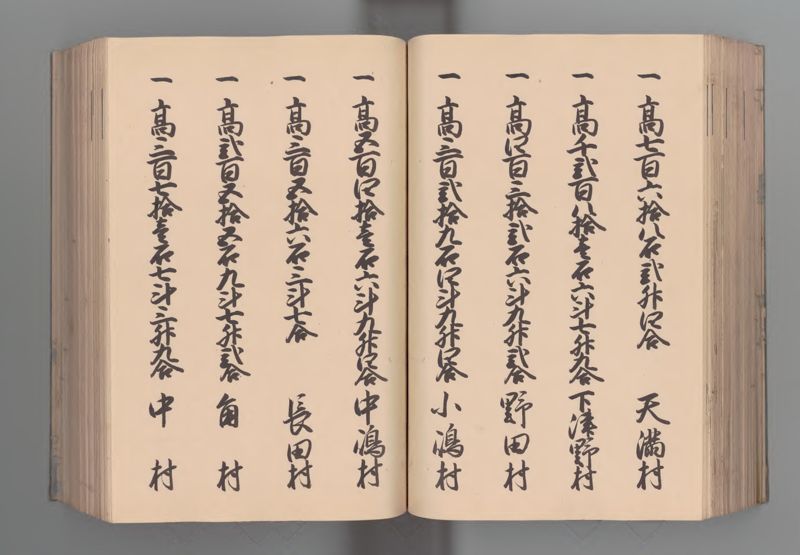 一 高七百六拾八石弐升四合 天満村
一 高千弐百八拾壱石六斗七升九合 下津野村
一 高四百三拾弐石六斗九升弐合 野田村
一 高三百弐拾九石四斗九升四合 小嶋村
一 高五百四拾壱石六斗九升四合 中嶋村
一 高三百五拾六石三斗七合 長田村
一 高弐百五拾五石九斗七升弐合 角村
一 高三百七拾壱石七斗三升九合 中村